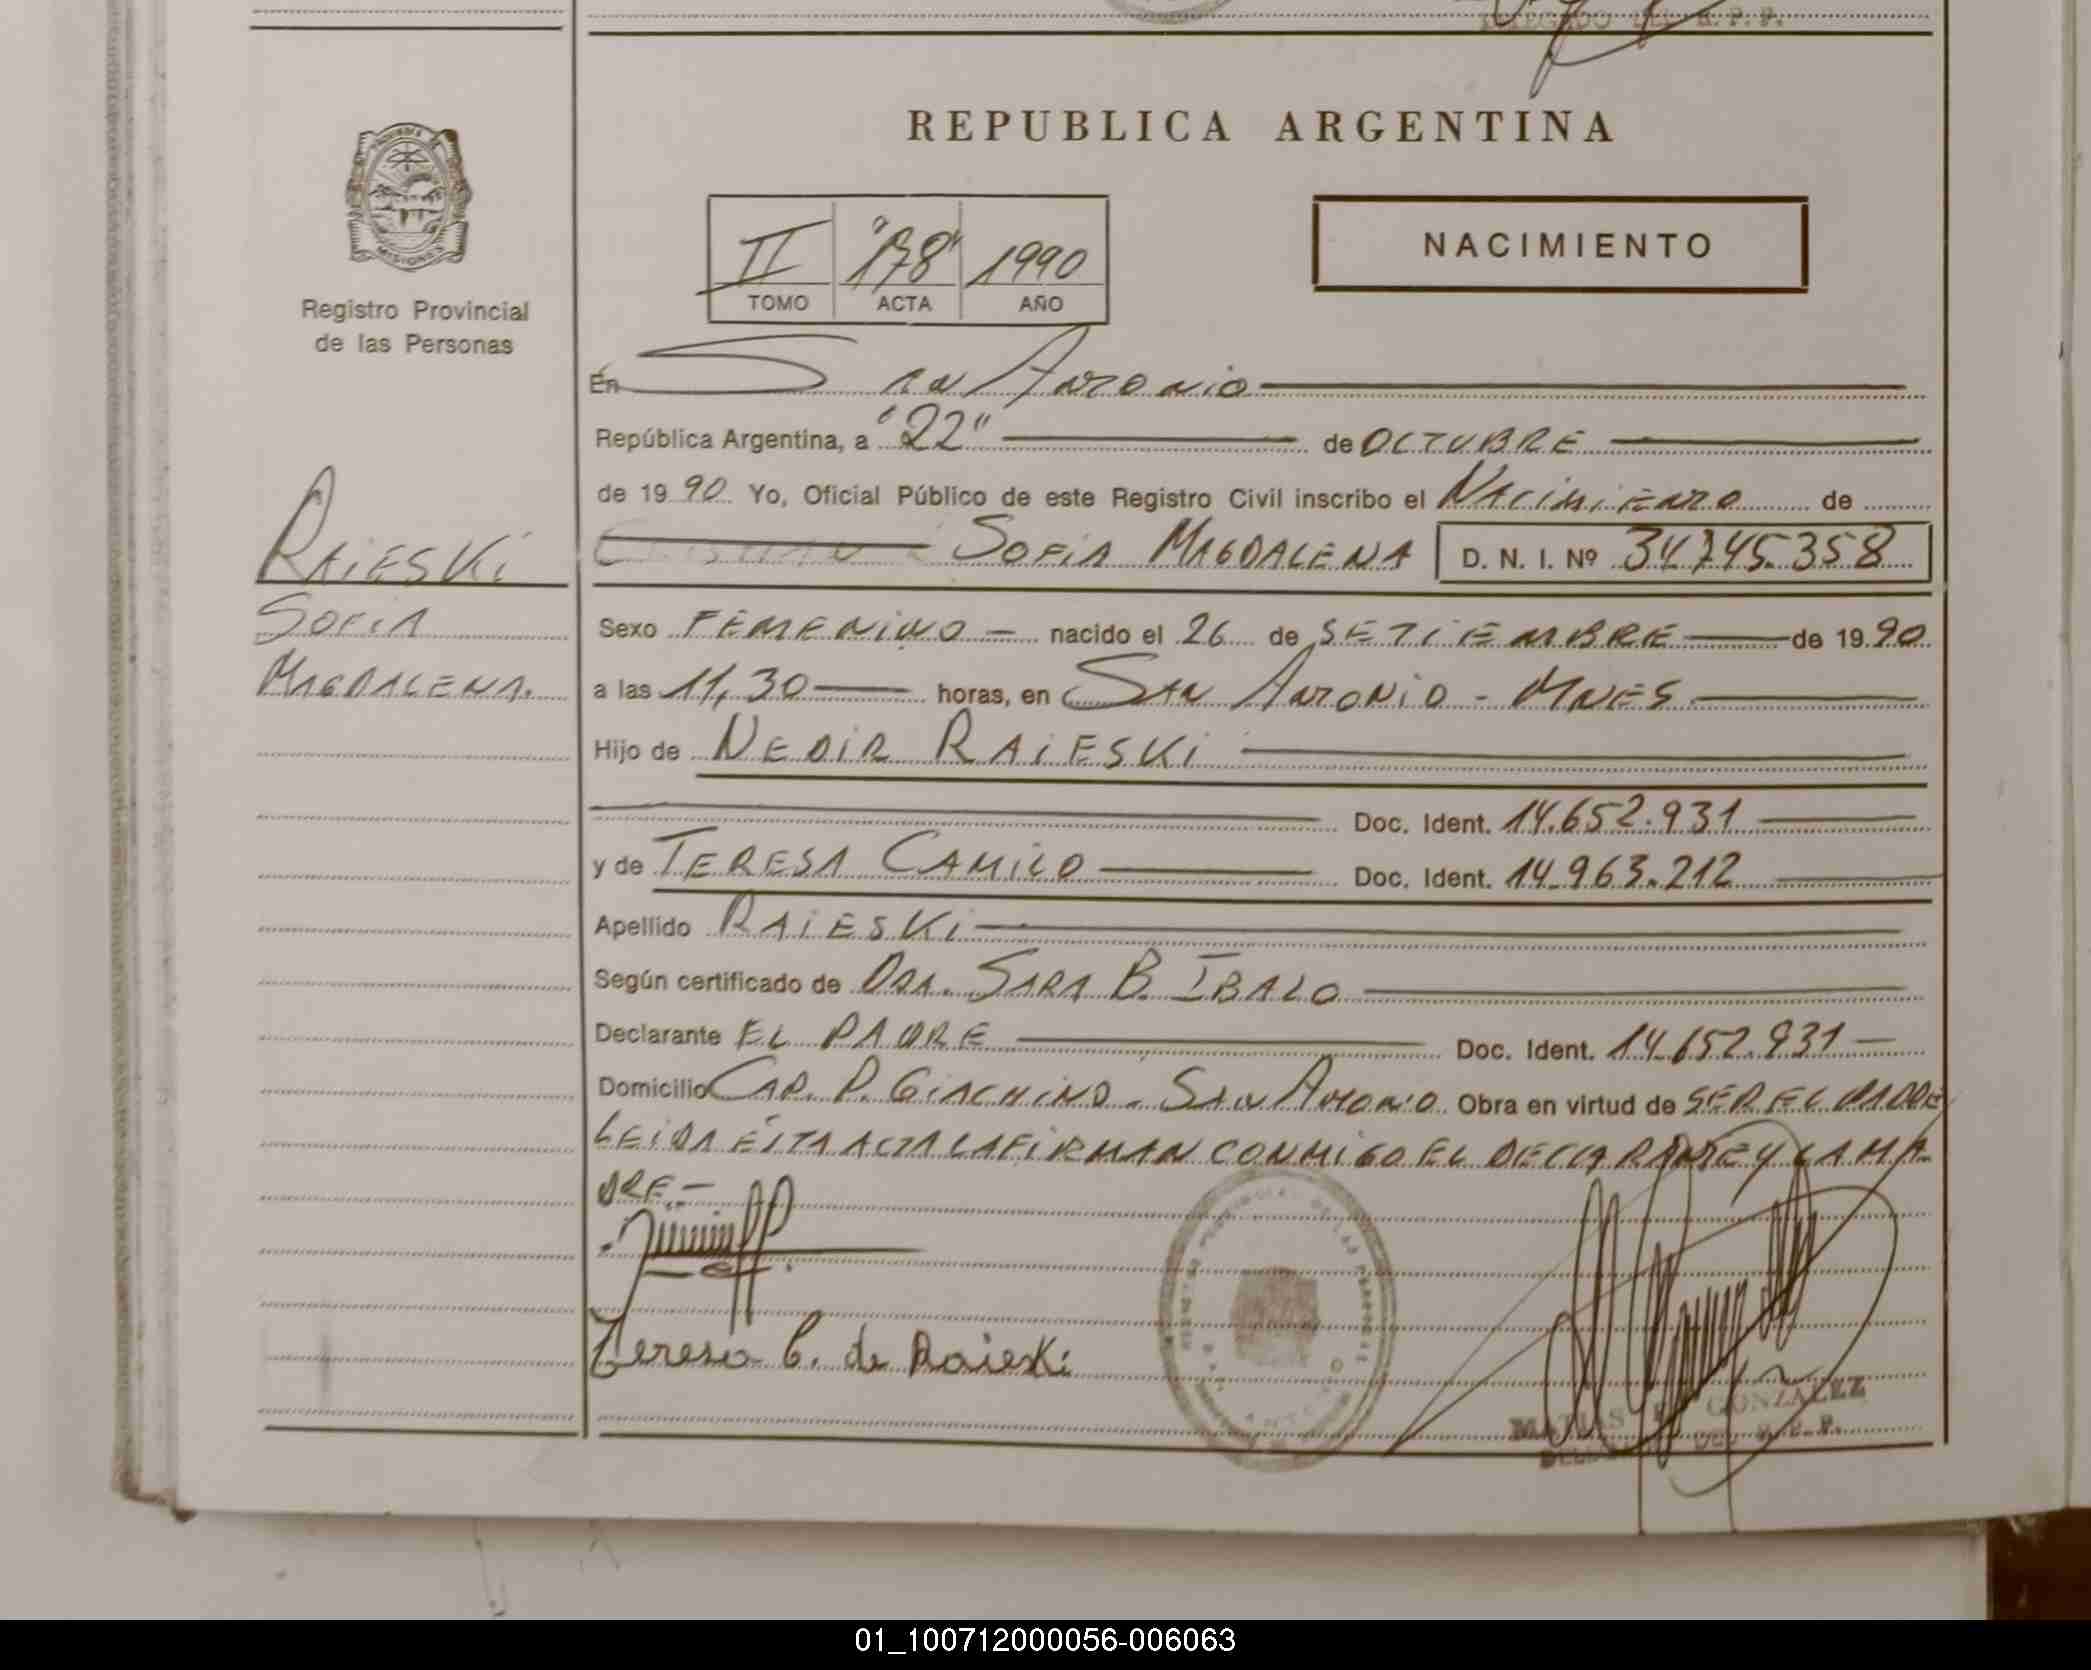 REPUBLICA ARGENTINA
PROVINCIA DE
MISIONES
Registro Provincial
de las Personas
II "178" 1990
TOMO ACTA AÑO
NACIMIENTO
En San Antonio
República Argentina, a "22" de OCTUBRE
de 19 90 Yo, Oficial Público de este Registro Civil inscribo el Nacimiento de
SOFIA MAGDALENA D. N. I. Nº 34.745.358
RAIESKI
SOFIA
MAGDALENA.
Sexo FEMENINO - nacido el 26 de SETIEMBRE de 19 90
a las 11,30 horas, en SAN ANTONIO - MNES
Hijo de NEDIR RAIESKI
Doc. Ident. 14.652.931
y de TERESA CAMILO Doc. Ident. 14.963.212
Apellido RAIESKI
Según certificado de DRA. SARA B. IBALO
Declarante EL PADRE Doc. Ident. 14.652.931
Domicilio CAP. P. GIACHINO - SAN ANTONIO Obra en virtud de SER EL PADRE
LEIDA ÉSTA ACTA LA FIRMAN CONMIGO EL DECLARANTE Y LA MA-
DRE.-
Teresa C. de Raieski
MATIAS GONZALEZ
DEL R.P.P.
01_100712000056-006063